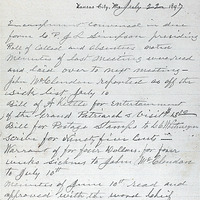 Kansas City, Mo, July 2nd 1897
Encampment convened in due
form by P. J. L. Simpson presiding
Roll of called and absentees noted
Minutes of last meeting unread
and laid over to next meeting
John McClendon reported as off the
sick list July 10
Bill of A Kittle for Entertainment
of the Grand Patriarch's visit
Bill for Postage Stamps to
Scribe for Ninety five cents
Warrant of for four Dollars, for four
weeks sickness to John McClendon
to July 10th
Minutes of June 10th read and
approved with the word chief